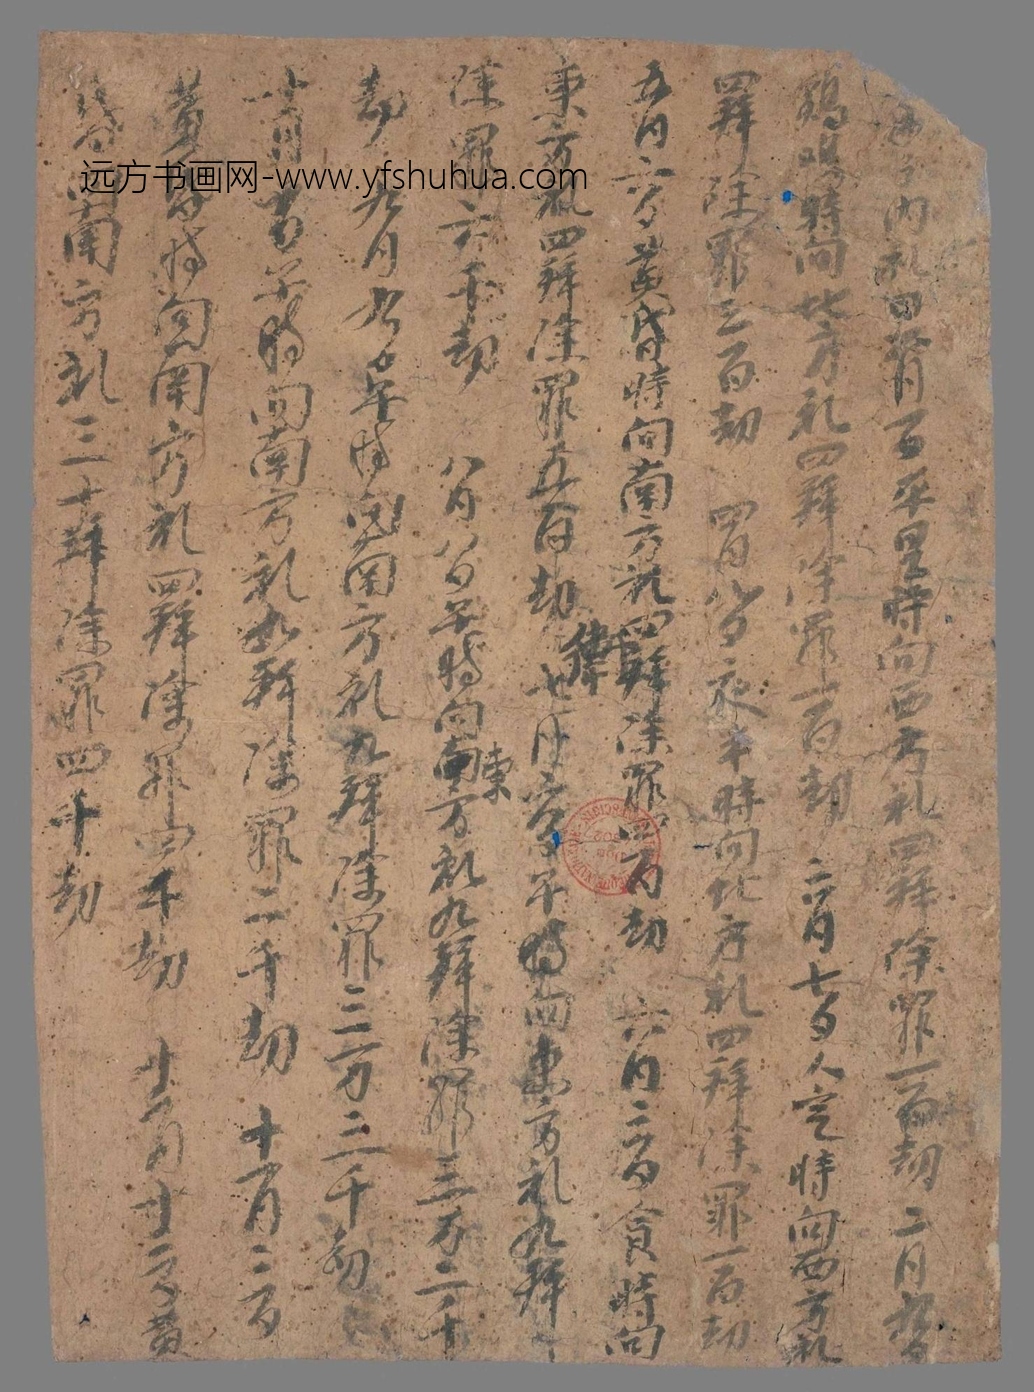 内礼四拜 正月一日平旦時向西方礼四拜除罪一百劫 二月九日
鷄鳴時向北方礼四拜除罪一百劫 三月七日人定時向西方礼
四拜除罪三百劫 四月八日夜半時向北方礼四拜除罪一百劫
五月六日黄昏時向南方礼四拜除罪四百劫 六月二日食時向
東方礼四拜除罪五百劫 七月六日午時向東方礼九拜
除罪六千劫 八月八日午時向東南方礼九拜除罪三万二千
劫 九月九日午時向南方礼九拜除罪三万三千劫
十月一日午時向南方礼四拜除罪二千劫 十一月三日
黄昏時向南方礼四拜除罪四千劫 十二月廿二日黄
昏向南方礼三十拜除罪四千劫
远方书画网-www.yfshuhua.com